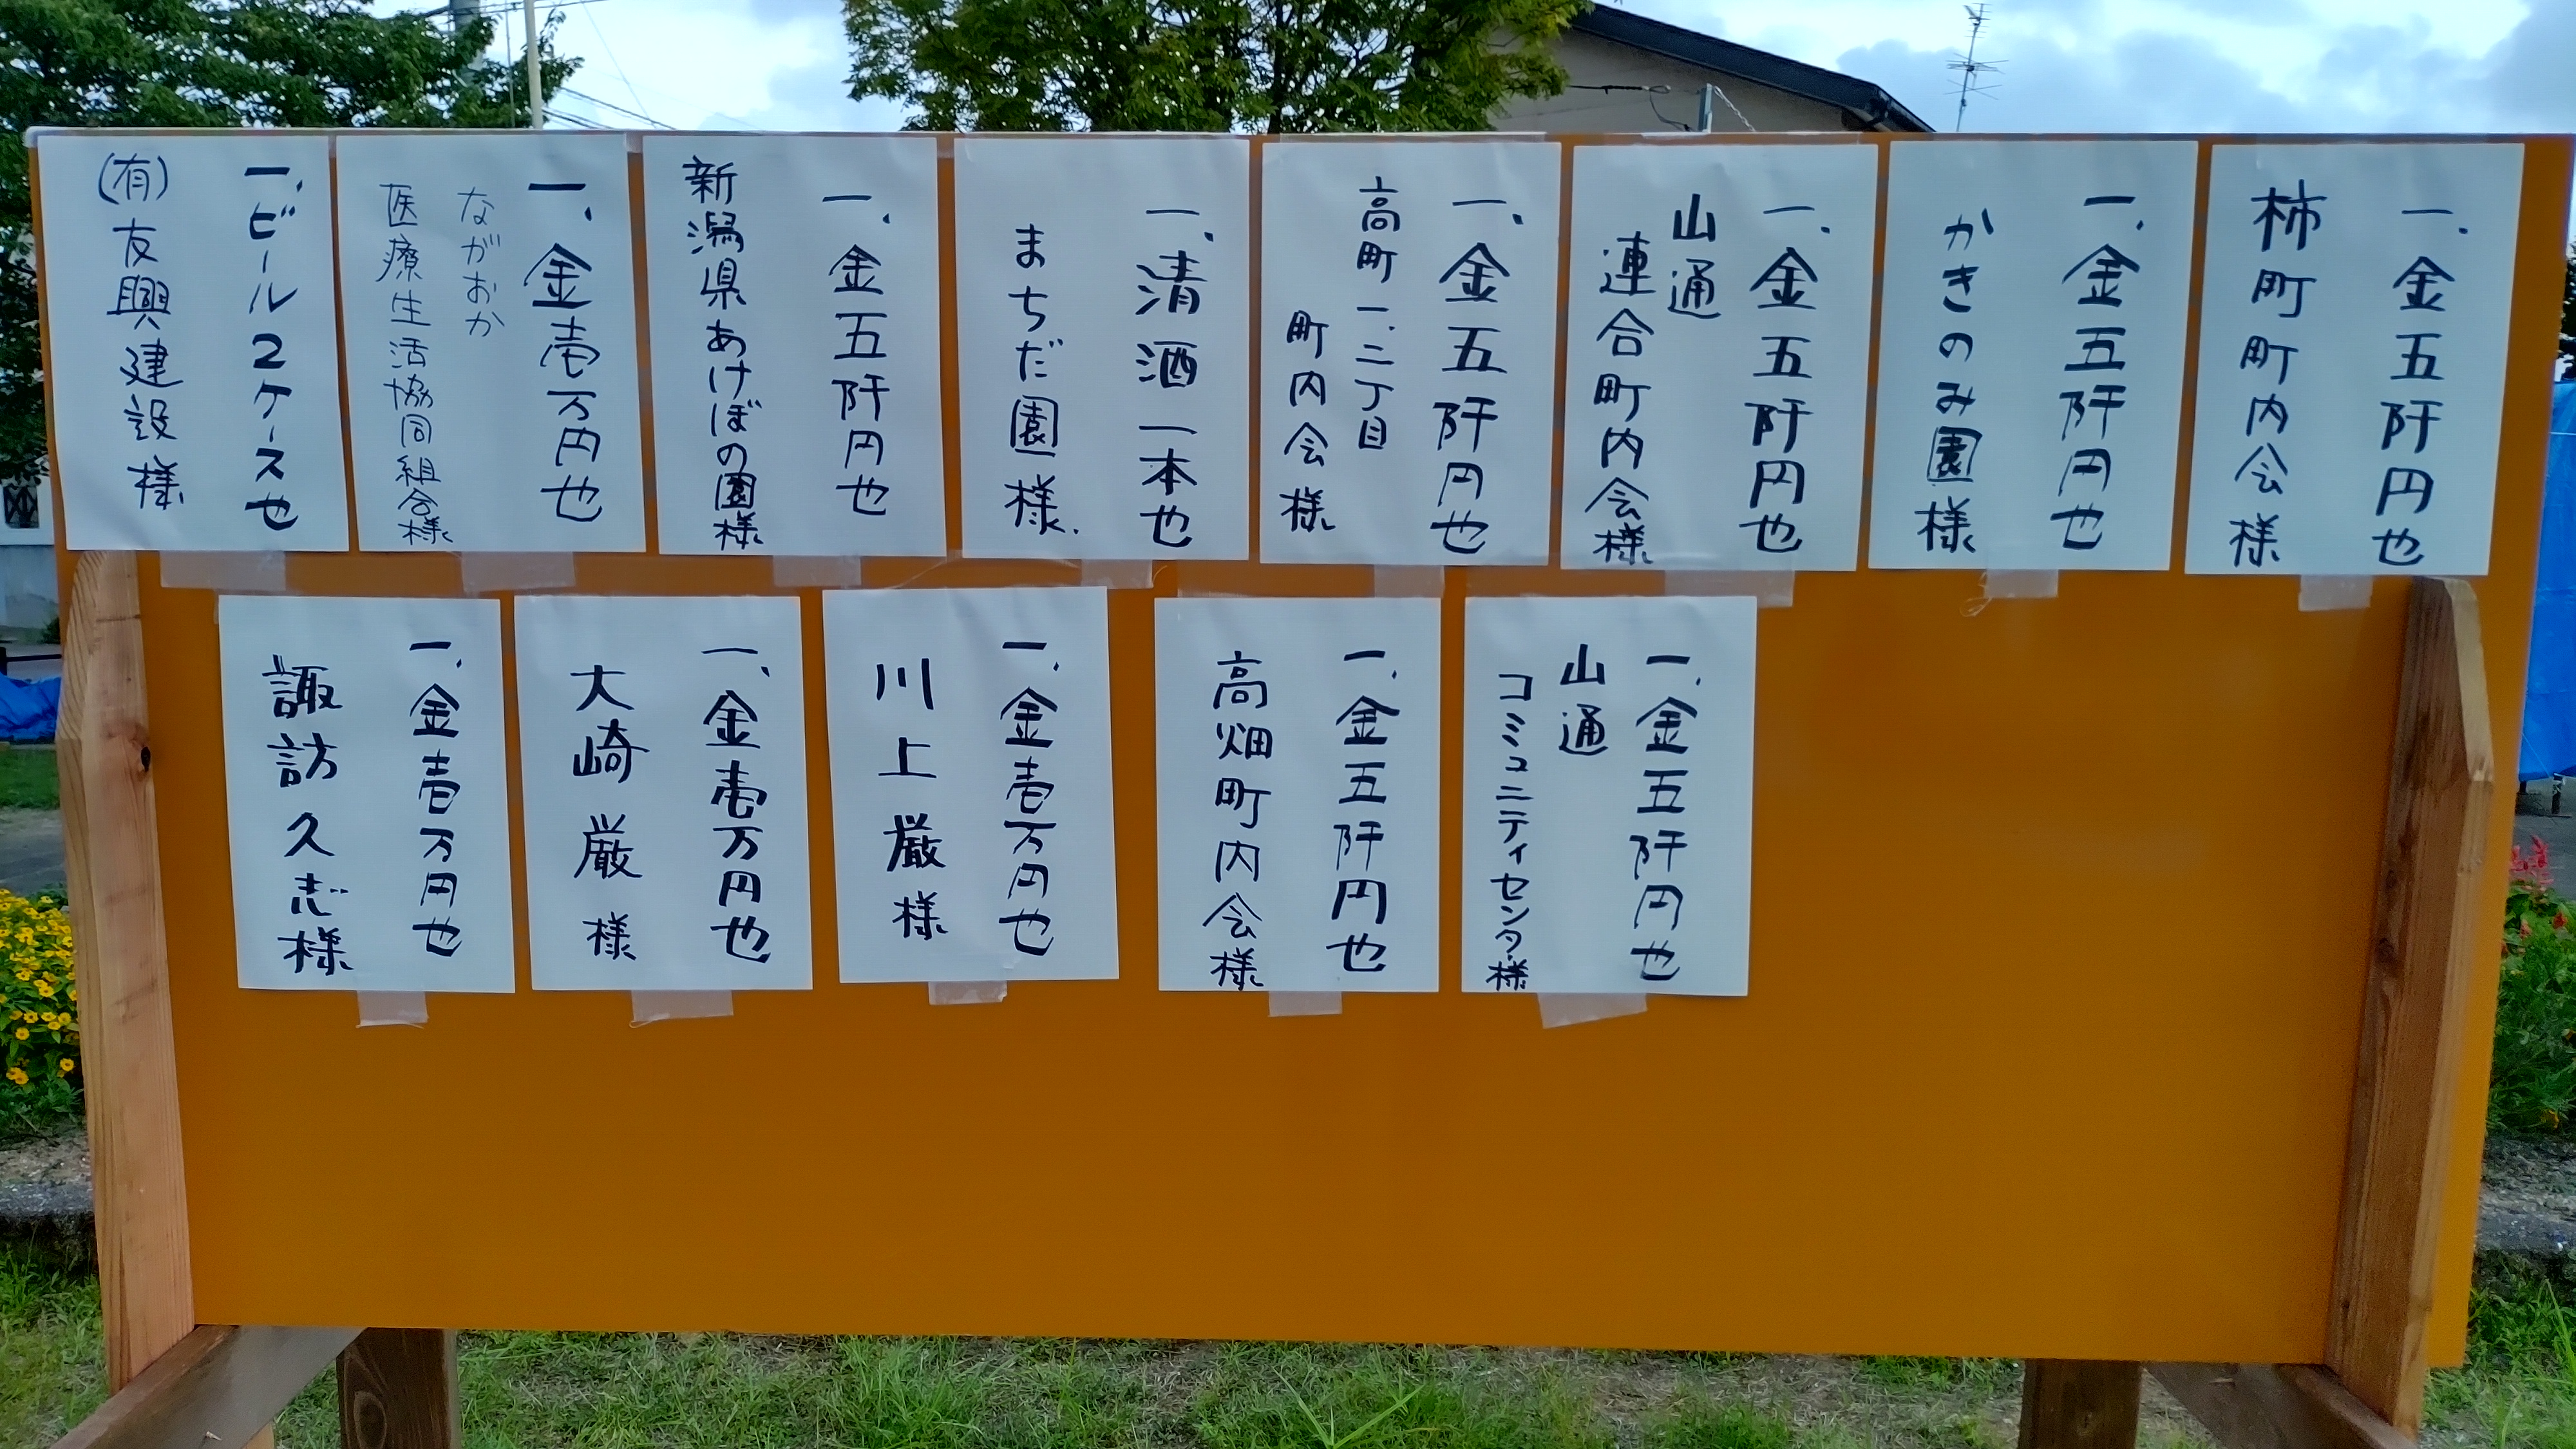 一、金五阡円也
柿町町内会様
一、金五阡円也
かきのみ園様
一、金五阡円也
山通
連合町内会様
一、金五阡円也
高町一、二丁目
町内会様
一、清酒一本也
まちだ園様.
一、金五阡円也
新潟県あけぼの園様
一、金壱万円也
ながおか
医療生活協同組合様
一、ビール2ケース也
(有)友興建設様
一、金五阡円也
山通
コミュニティセンター様
一、金五阡円也
高畑町内会様
一、金壱万円也
川上厳様
一、金壱万円也
大崎厳様
一、金壱万円也
諏訪久志様